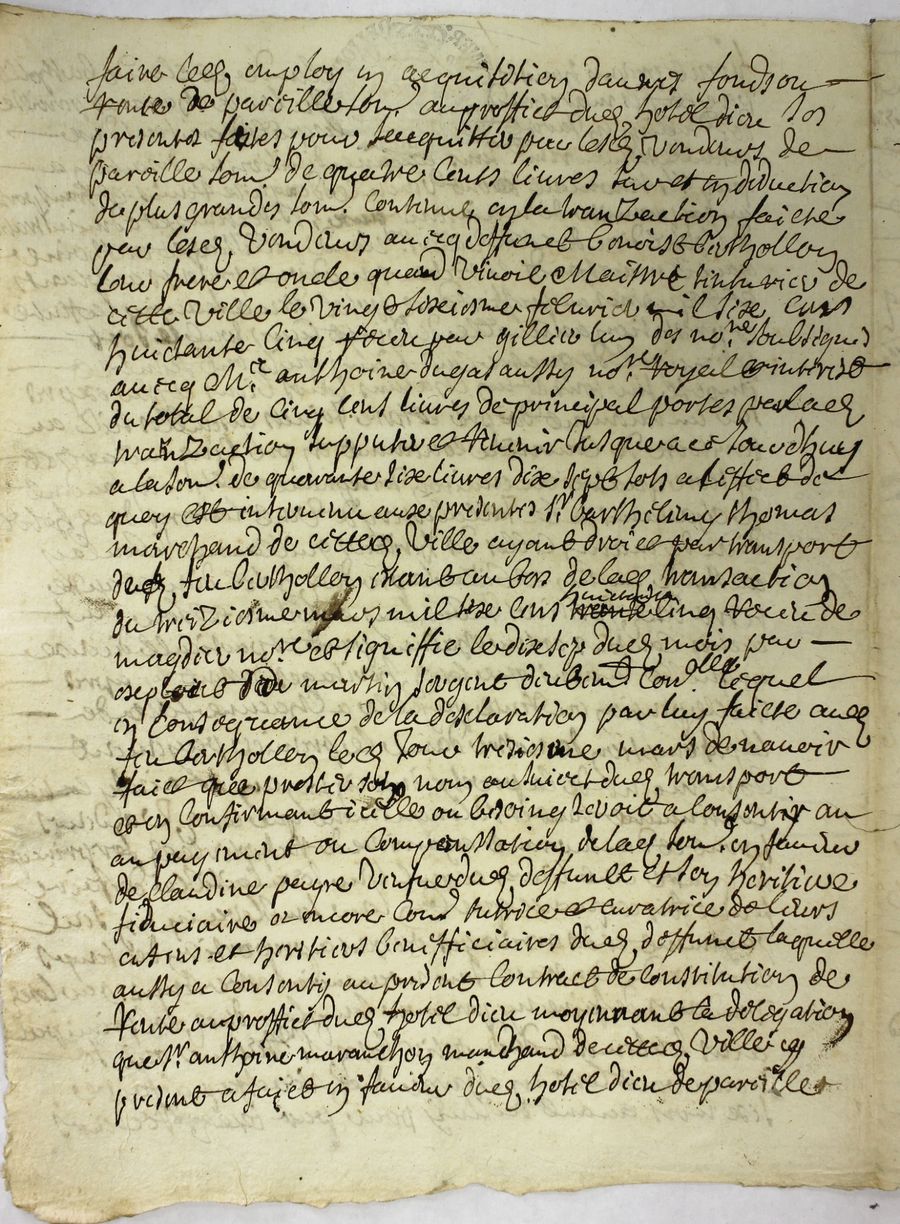 faire led employ en acquisition dautres fonds ou
rente de pareille som. au proffict dud hotel dieu les
presentes faites pour sacquitter par lesd vendeurs de
pareille som. de quatre cents livres sur et en deduction
de plus grandes som. contenue en la tranzaction faicte
par lesd vendeurs avecq deffunct benoist bartholley
leur frere et oncle quand vivoit Maistre tinturier de
cette ville le vingt sixiesme febvrier mil six cens
huictante cinq receue par gillier lun des no.re soubsignes
avecq M.e anthoine dugas aussy no.re royal et interest
du total de cinq cent livres de principal portes par lad
tranzaction supputes et revenir jusques a ce jourdhuy
a la som. de quarante six livres dix sept sols a leffect de
quoy est intervenu aux presentes s.r barthelemy thomas
marchand de cetted ville ayant droict par transport
dud feu bartholley estant au bas de lad transaction
du treiziesme mars mil six cens huictante cinq receu de
magdier no.re et signiffie le dixsept dud mois par
exploict de martin sergent lequel
en consequance de la desclaration par luy faicte aud
feu bartholley led jour tresiesme mars de navoir
faict que prester son nom au subiect dud transport
et en confirmant icelle ou besoing seroit a consenty au
au payement ou compensation de lad som. en faveur
de claudine payre veufve dud deffunct et son heritiere
fiduciaire et encore comme tutrice et curatrice de leurs
enfens et heritiers benefficiaires dud deffunct laquelle
aussy a consenty au present contract de constitution de
rente au proffict dud hotel dieu moyennant la delegation
que s.r anthoine maranchon marchand de cetted ville cy
present a faict en faveur dud hotel dieu de pareille